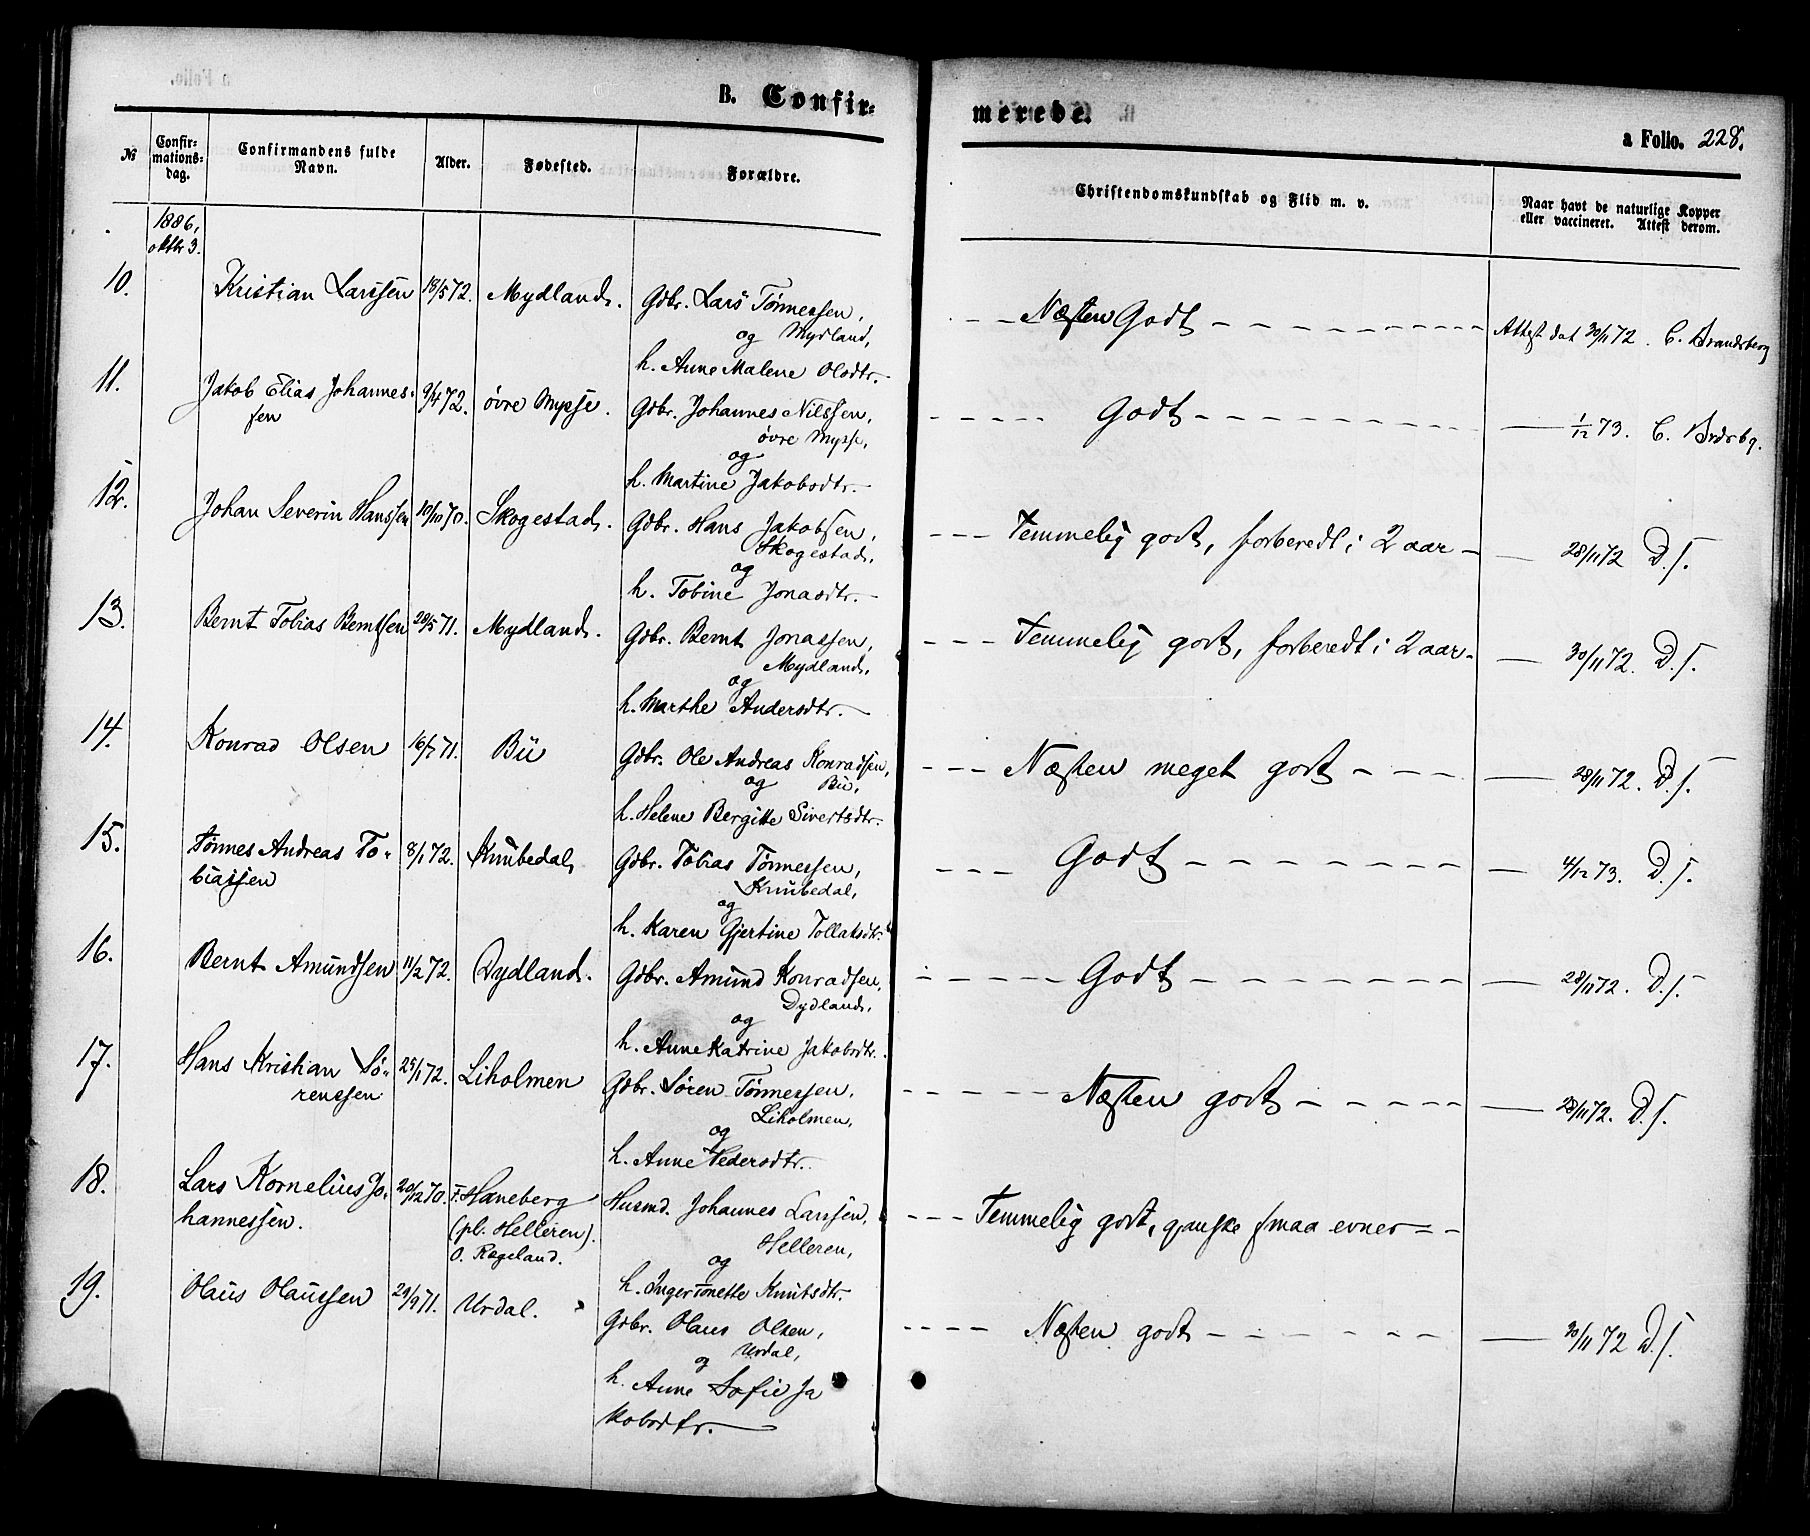 B. Confir-
merede.
a Folio. 228.
№
Confir-
mations-
dag.
Confirmandens fulde
Navn.
Alder.
Fødested.
Forældre.
Christendomskundskab og Flid m. v.
Naar havt de naturlige Kopper
eller vaccineret. Attest derom.
1886,
oktbr 3.
10. Kristian Larssen 18/5 72. Mydland. Gdbr. Lars Tønnessen,
og Mydland,
h. Anne Malene Olsdtr.
Næsten Godt
Attest dat 30/11 72. C. Brandsberg
11. Jakob Elias Johannes-
sen
9/4 72. øvre Mysse. Gdbr. Johannes Nilssen,
øvre Mysse,
og
h. Martine Jakobsdtr.
Godt
1/12 73. C. Brdsbg.
12. Johan Severin Hanssen 10/10 70. Skogestad. Gdbr. Hans Jakobsen,
Skogestad,
og
h. Tobine Jonasdtr.
Temmelig godt, forberedt i 2 aar
28/11 72 D.s.
13. Bernt Tobias Berntsen 28/5 71. Mydland. Gdbr. Bernt Jonassen,
Mydland,
og
h. Marthe Andersdtr.
Temmelig godt, forberedt i 2 aar
30/11 72. D.s.
14. Konrad Olsen 16/7 71. Bu Gdbr. Ole Andreas Konradsen,
og Bu,
h. Helene Bergitte Sivertsdtr.
Næsten meget godt
28/11 72. D.s.
15. Tønnes Andreas To-
biassen
8/1 72. Knubedal Gdbr. Tobias Tønnessen,
Knubedal,
og
h. Karen Gjertine Tollaksdtr.
Godt
4/12 73. D.s.
16. Bernt Amundsen 11/2 72. Dydland. Gdbr. Amund Konradsen,
Dydland,
og
h. Anne Katrine Jakobsdtr.
Godt
28/11 72. D.s.
17. Hans Kristian Sø-
renssen
25/1 72. Liholmen Gdbr. Søren Tønnessen,
Liholmen,
og
h. Anne Pedersdtr.
Næsten godt
28/11 72. D.s.
18. Lars Kornelius Jo-
hannessen.
20/12 70. F. Haneberg
(pl. Helleren).
O. Rægeland.
Husmd. Johannes Larssen,
Helleren,
og
h. Inger Tonette Knutsdtr.
Temmelig godt, ganske smaa evner
19. Olaus Olaussen 29/9 71. Urdal. Gdbr. Olaus Olsen,
Urdal,
og
h. Anne Sofie Ja
kobsdtr.
Næsten godt
30/11 72 D.s.